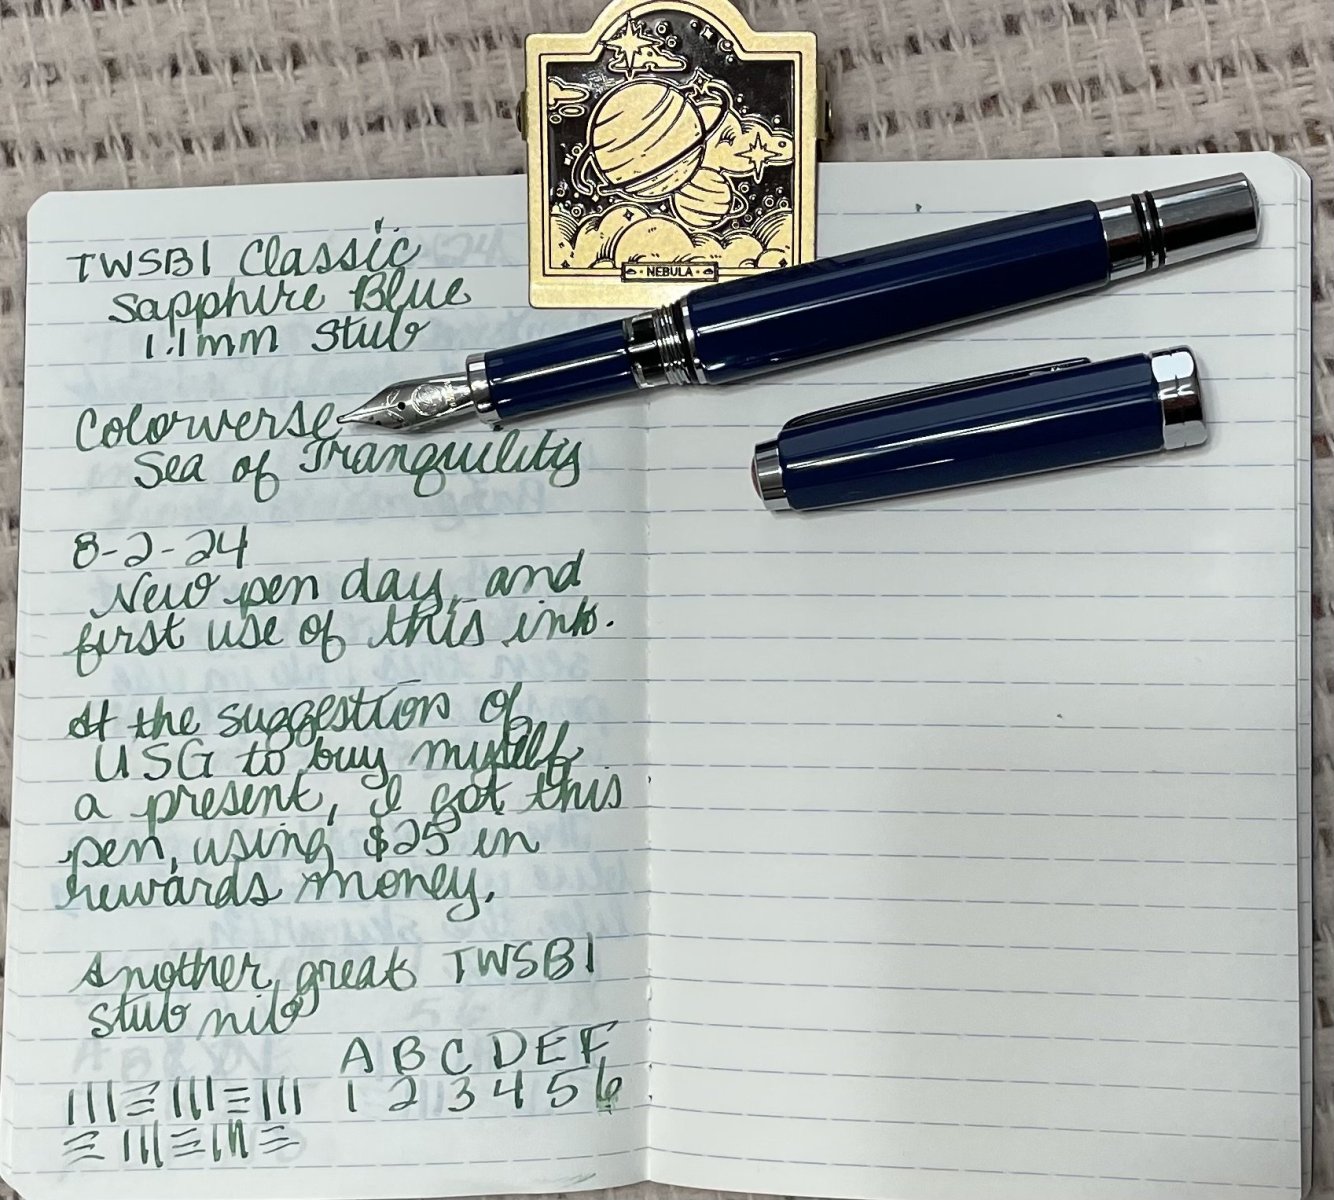 NEBULA
TWSBI Classic
Sapphire Blue
1.1mm Stub
Colorverse
Sea of Tranquility
8-2-24
New pen day, and
first use of this ink.
At the suggestion of
USG to buy myself
a present, I got this
pen, using $25 in
rewards money.
Another great TWSBI
stub nib
A B C D E F
1 2 3 4 5 6